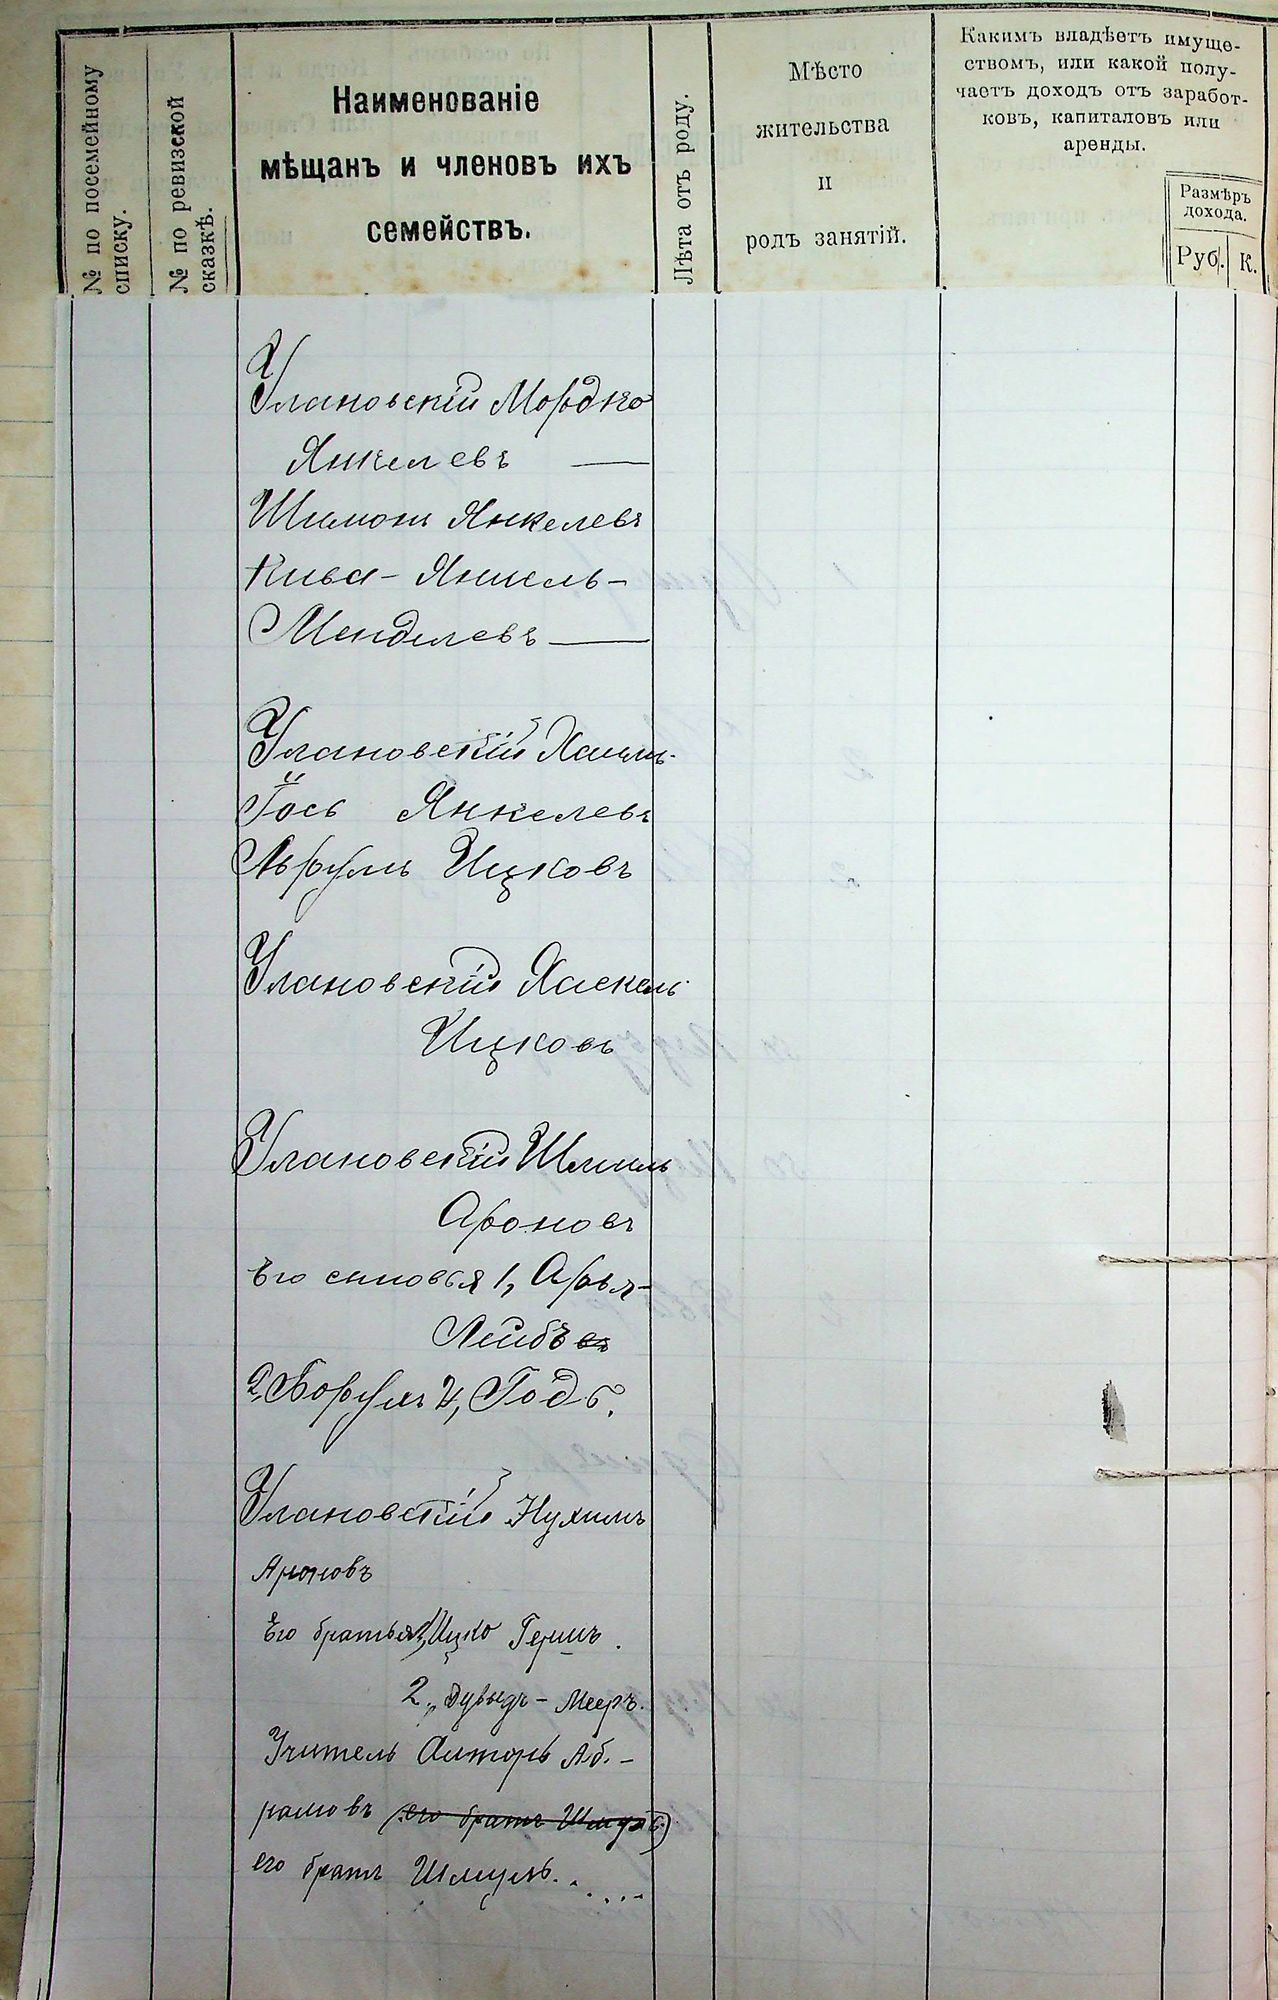 № по посемейному
списку.
№ по ревизской
сказкѣ.
Наименованіе
мѣщанъ и членовъ ихъ
семействъ.
Лѣта отъ роду.
Мѣсто
жительства
и
родъ занятій.
Какимъ владѣетъ имуще-
ствомъ, или какой полу-
чаетъ доходъ отъ заработ-
ковъ, капиталовъ или
аренды.
Размѣръ
дохода.
Руб. К.
Улановскій Мордко
Янкелевъ —
Шимон Янкелевъ
Кива - Янкель -
Менделевъ —
Улановскій Хаимъ-
Іось Янкелевъ
Аврумъ Ицковъ
Улановскій Хаскель
Ицковъ
Улановскій Шмиль
Ароновъ
Его сыновья 1, Арья-
Лейбъ
2, Борухъ и, Годъ.
Улановскій Нухимъ
Ароновъ
Его братья 1, Ицко Гершъ.
2, Дувыдъ - Мееръ.
Учитель Алторъ Аб.-
рамовъ (его братъ Шмуль)
его братъ Шмуль.....